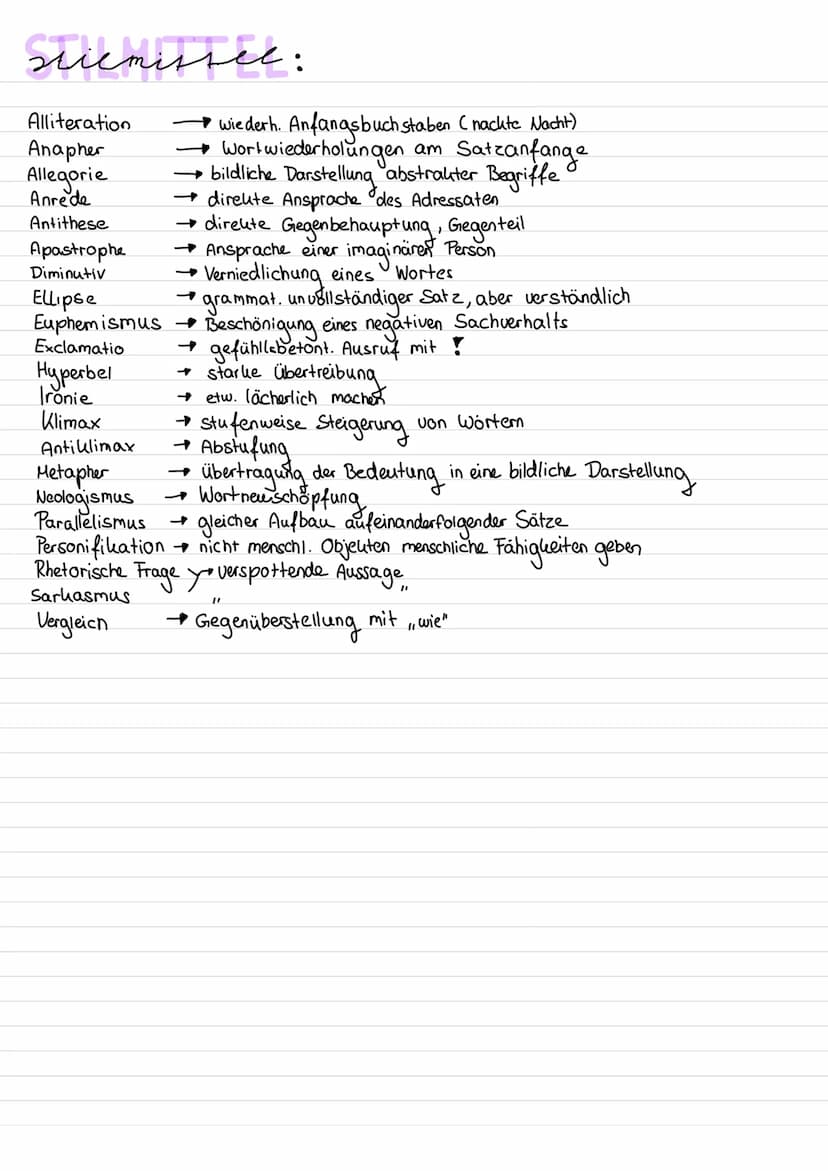 STILMITTEL
stilmittel:
Alliteration → wiederh. Anfangsbuchstaben (nackte Nacht)
Anapher → Wortwiederholungen am Satzanfange
Allegorie → bildliche Darstellung abstrakter Begriffe
Anrede → direkte Ansprache des Adressaten
Antithese → direkte Gegenbehauptung, Gegenteil
Apostrophe → Ansprache einer imaginären Person
Diminutiv → Verniedlichung eines Wortes
Ellipse → grammat. unvollständiger Satz, aber verständlich
Euphemismus → Beschönigung eines negativen Sachverhalts
Exclamatio → gefühllsbetont. Ausruf mit !
Hyperbel → starke Übertreibung
Ironie → etw. lächerlich machen
Klimax → stufenweise Steigerung von Wörtern
Antiklimax → Abstufung
Metapher → übertragung der Bedeutung in eine bildliche Darstellung
Neologismus → Wortneuschöpfung
Parallelismus → gleicher Aufbau aufeinanderfolgender Sätze
Personifikation → nicht menschl. Objekten menschliche Fähigkeiten geben
Rhetorische Frage → verspottende Aussage
Sarkasmus " "
Vergleich → Gegenüberstellung mit „wie"